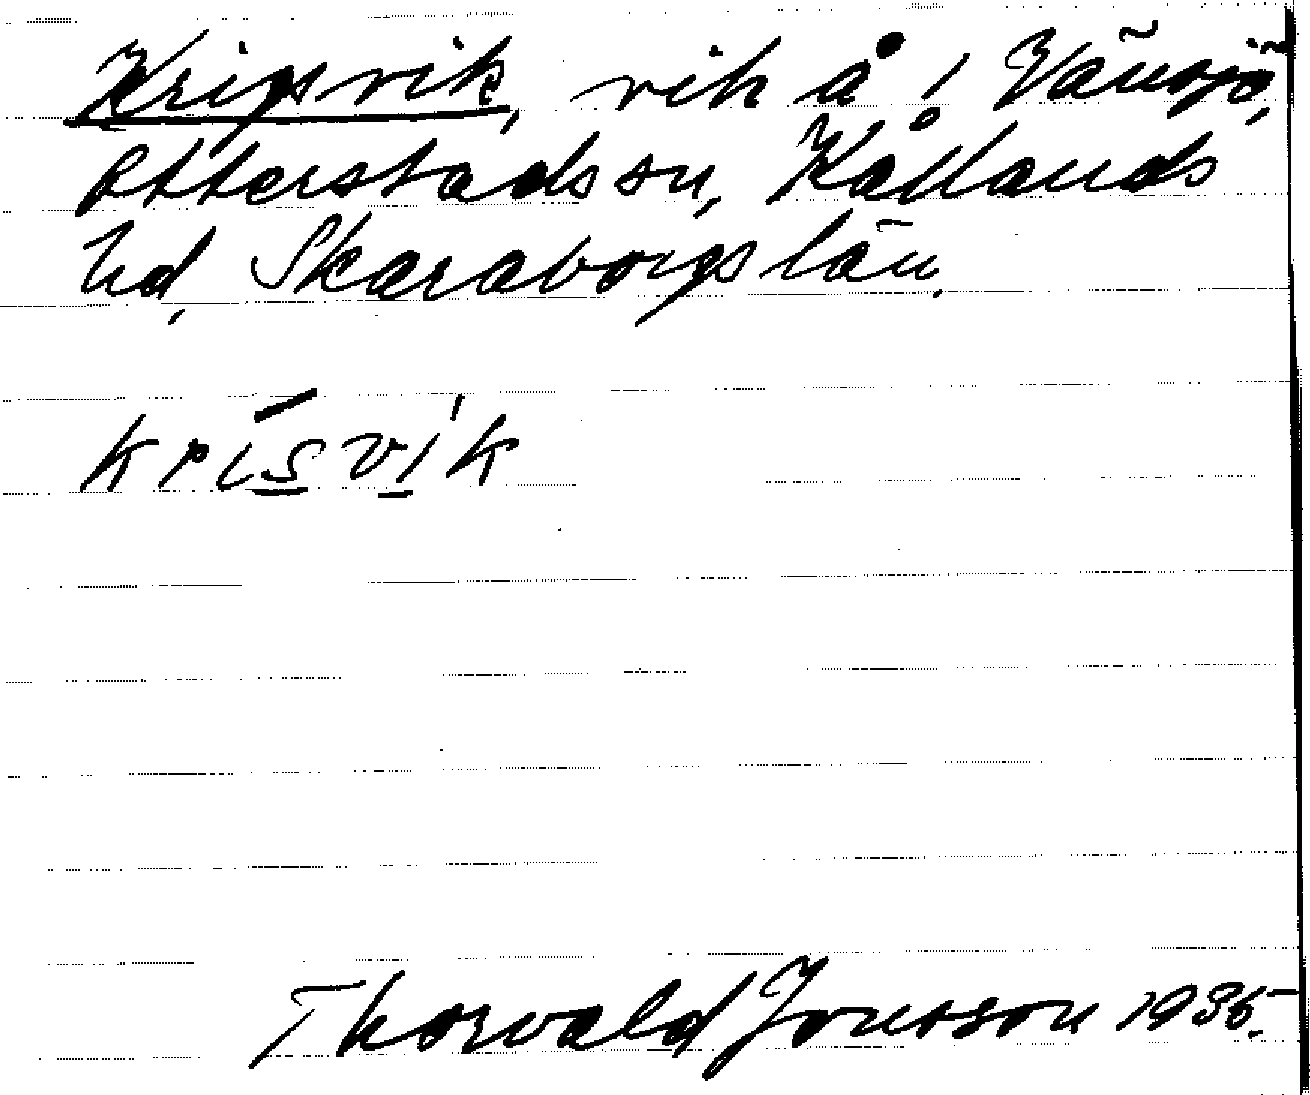 Kripsvik, vik å i Vänsjö,
Otterstads sn, Kållands
hd, Skaraborgs län.
krísvík
Thorvald Jonsson 1935.